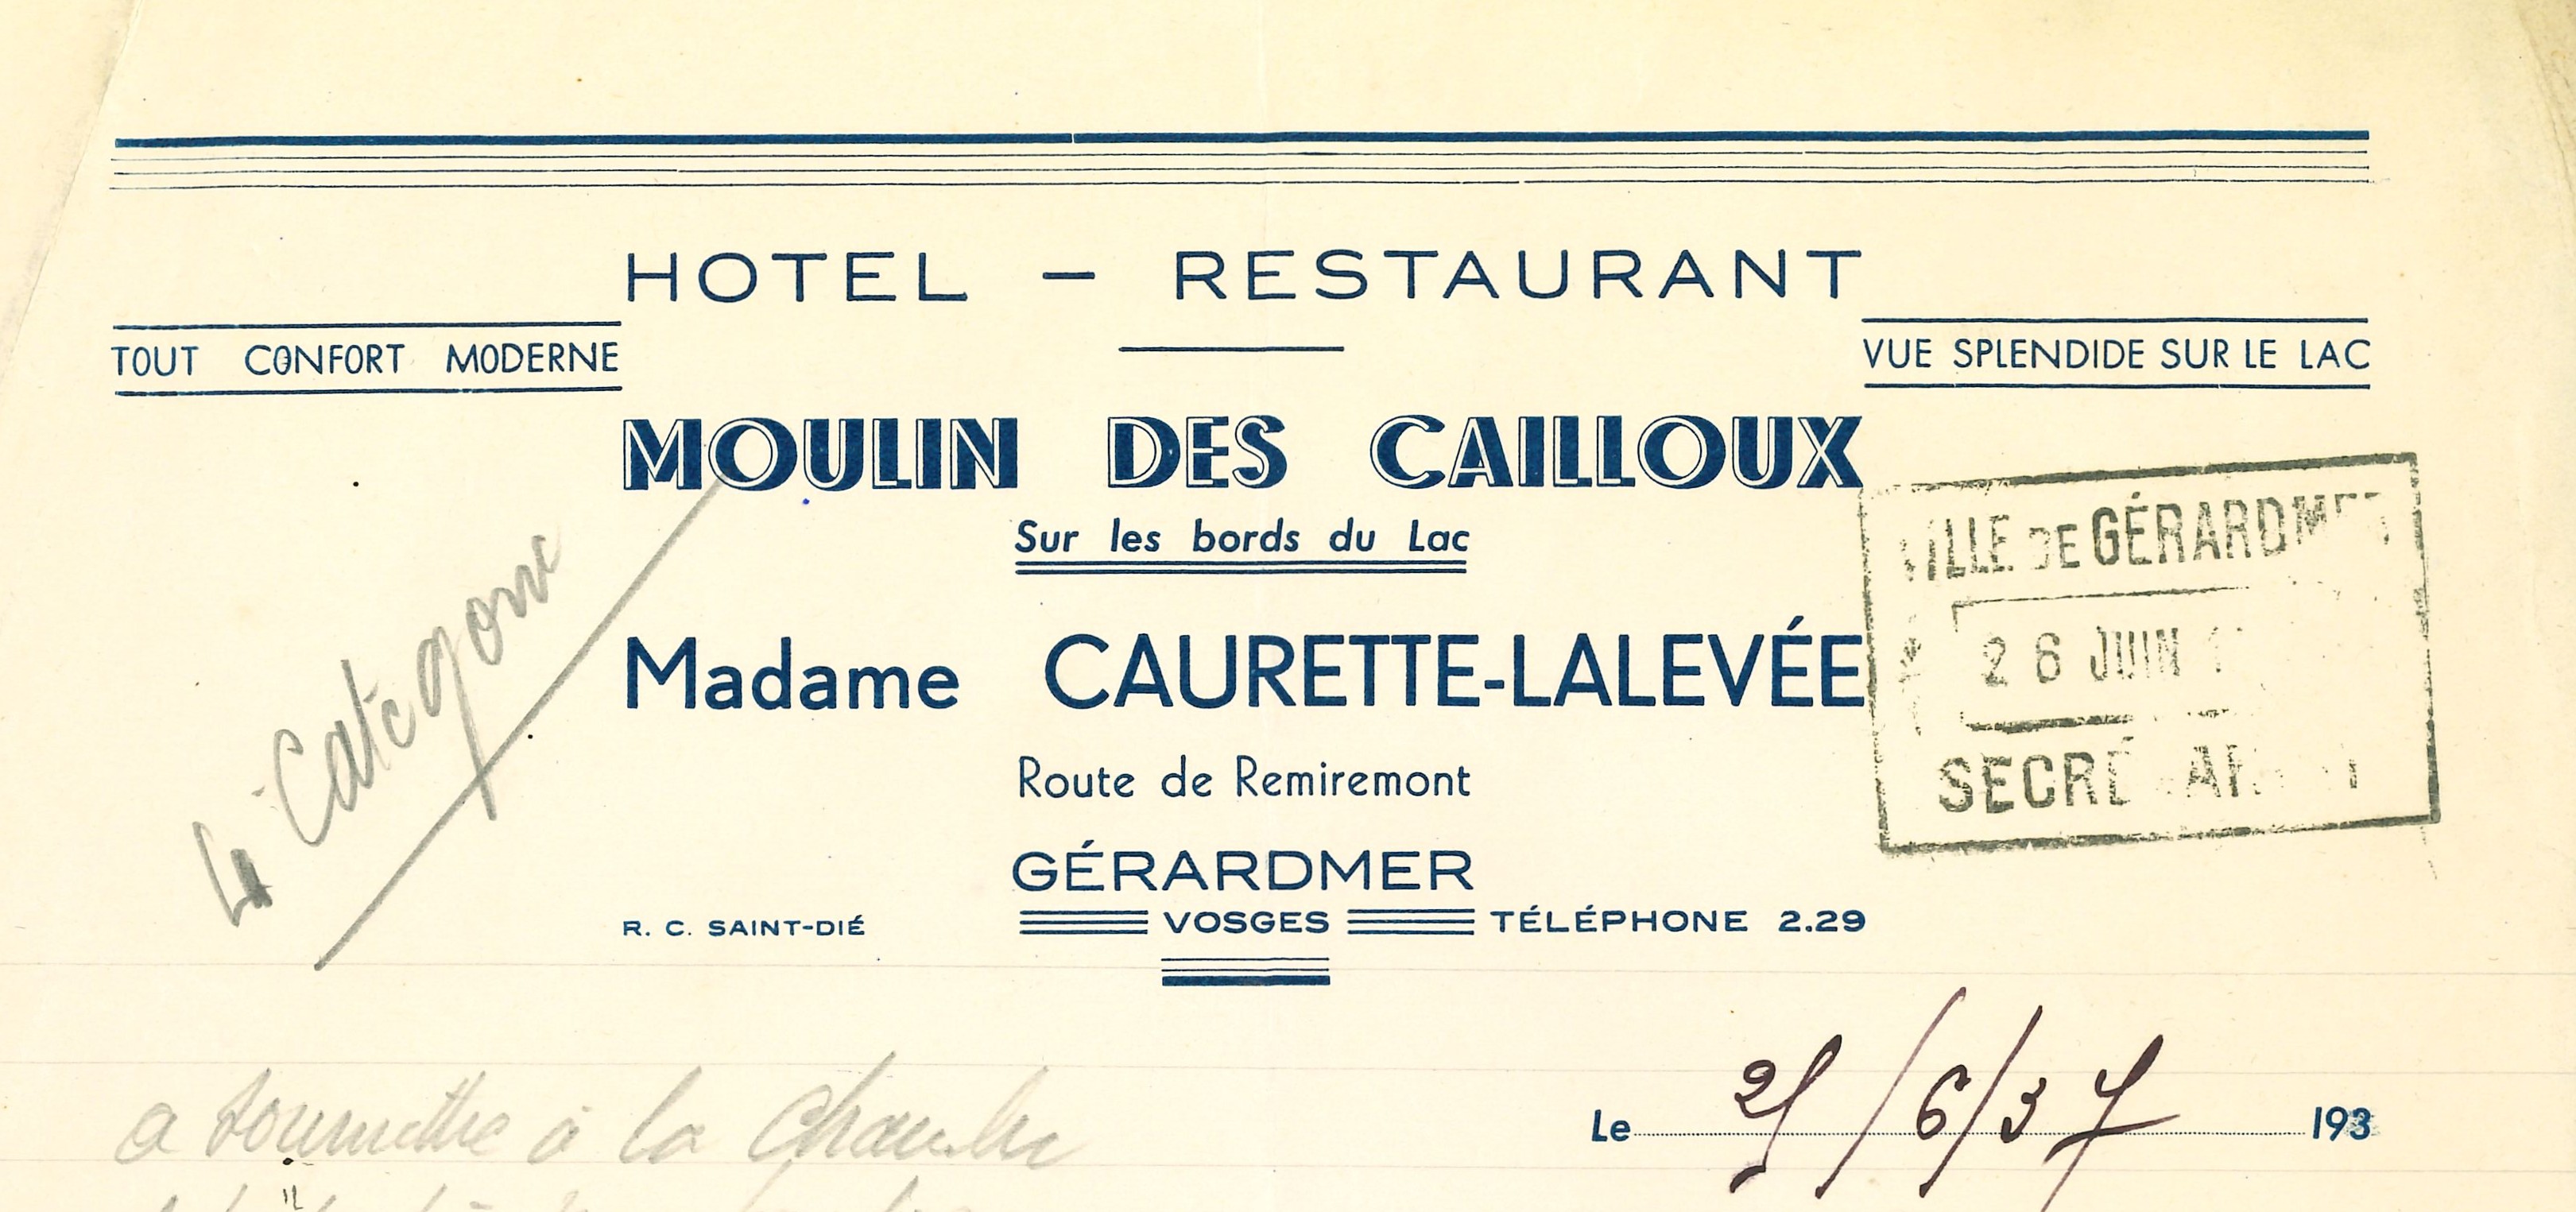 HOTEL – RESTAURANT
TOUT CONFORT MODERNE
VUE SPLENDIDE SUR LE LAC
MOULIN DES CAILLOUX
Sur les bords du Lac
VILLE DE GÉRARDMER
26 JUIN 1
SECRÉTARIAT
Catégorie
Madame CAURETTE-LALEVÉE
Route de Remiremont
GÉRARDMER
R. C. SAINT-DIÉ VOSGES TÉLÉPHONE 2.29
Le 21/6/37 193
a soumettre à la Chambre